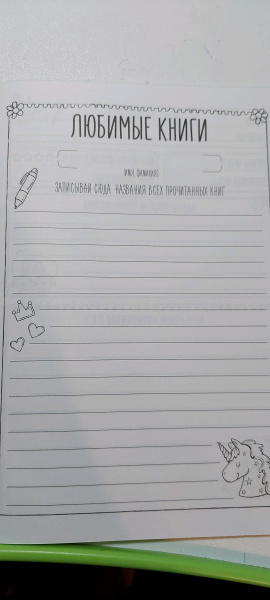 ЛЮБИМЫЕ КНИГИ
ИМЯ, ФАМИЛИЯ
ЗАПИСЫВАЙ СЮДА НАЗВАНИЯ ВСЕХ ПРОЧИТАННЫХ КНИГ